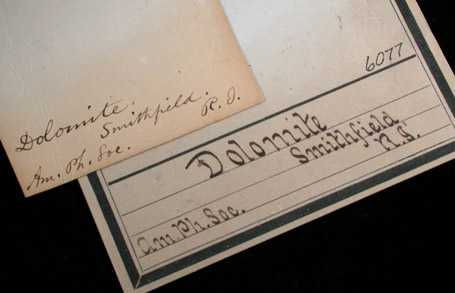 Dolomite.
Smithfield.
R. I.
Am. Ph. Soc.
6077
Dolomite
Smithfield
R.I.
Am.Ph.Soc.